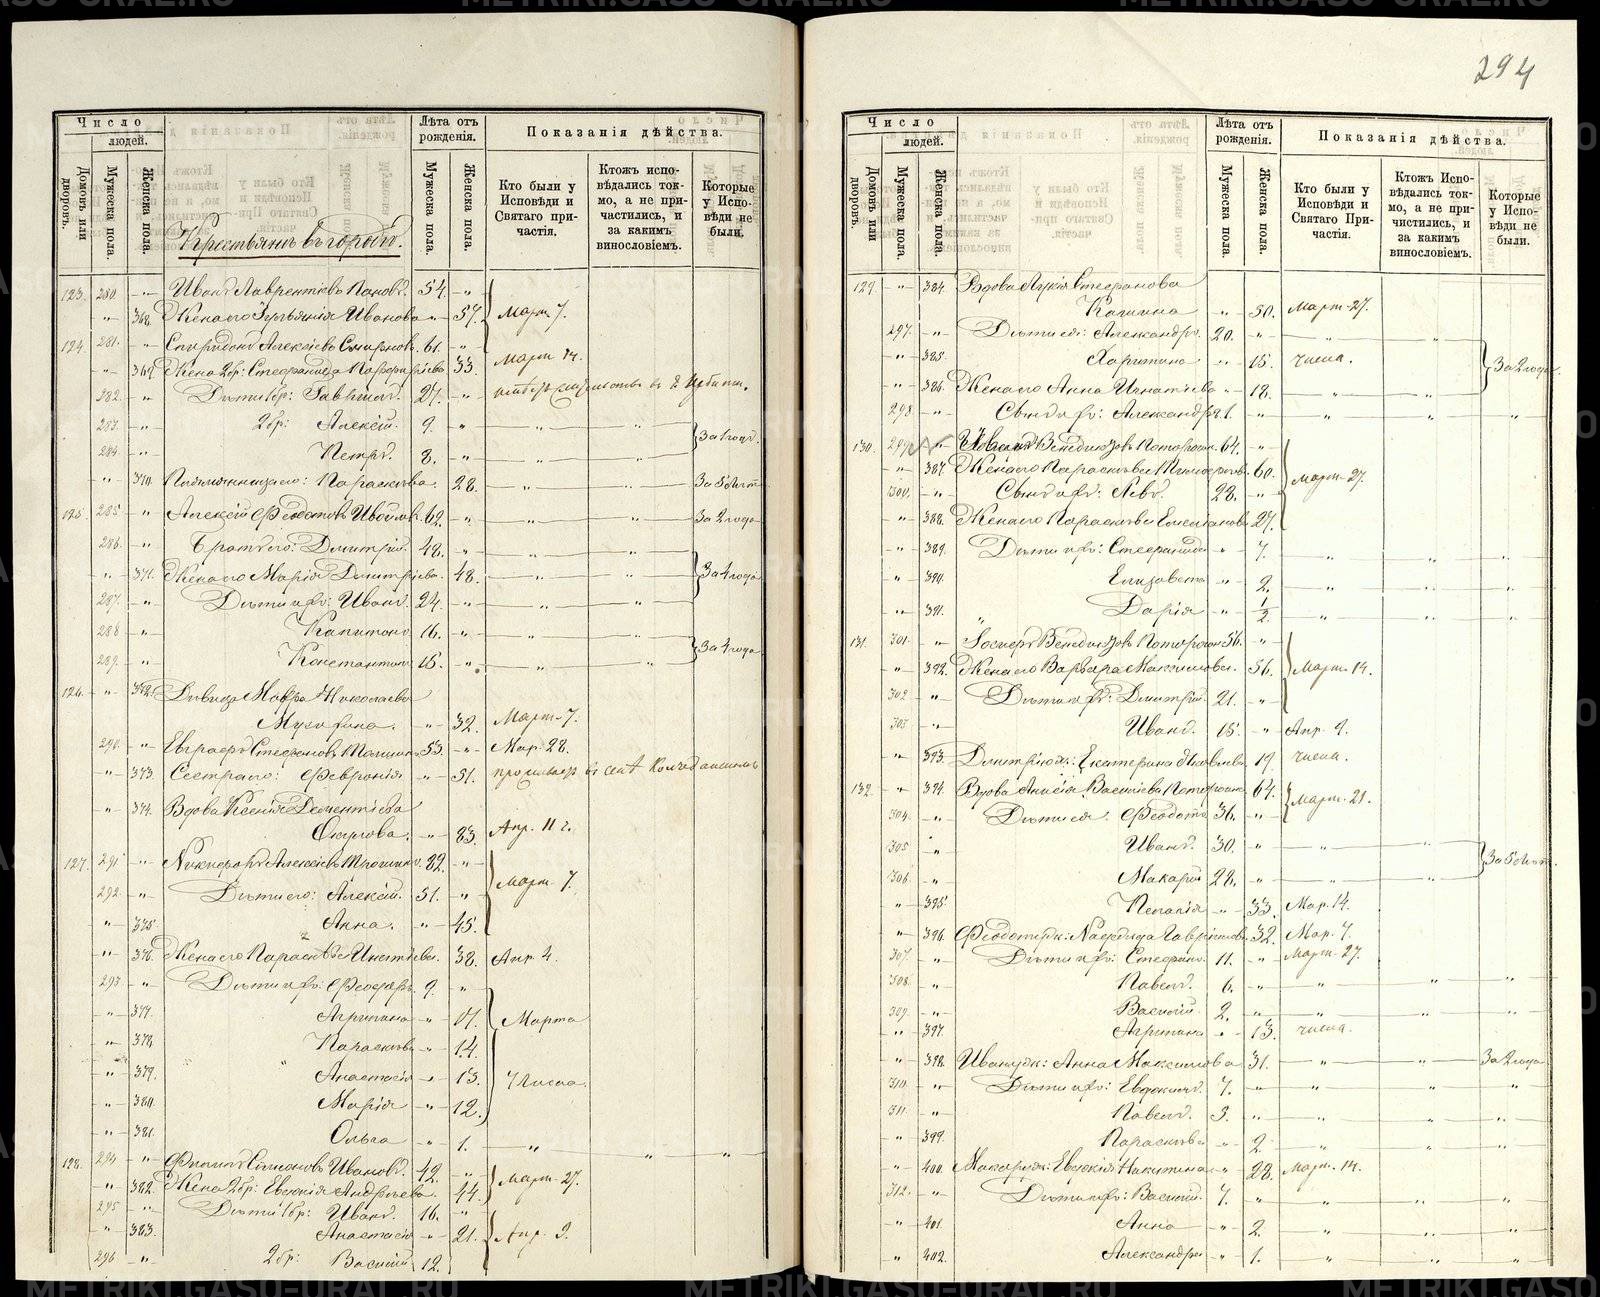 294
Число
людей.
Лѣта отъ рожденія.
Показанія дѣйства.
Домовъ или дворовъ.
Мужеска пола.
Женска пола.
Мужеска пола.
Женска пола.
Кто были у Исповѣди и Святаго причастія.
Ктожъ исповѣдались токмо, а не причастились, и за какимъ винословіемъ.
Которые у Исповѣди не были.
123. 280. Иванъ Лаврентіевъ Пановъ. 54. Март. 7.
368. Жена его Іульянія Иванова 57.
124. 281. Спиридонъ Алексіевъ Смирновъ. 61. Март. 14.
369. Жена 2 бр: Стефанида Порфиріева 33.
282. Дѣти 1 бр: Гавріилъ. 27.
283. 2 бр: Алексій. 9. За 1 годъ.
284. Петръ. 8.
370. Племянница его: Параскева. 28. За 5 лѣтъ
125. 285. Алексій Ѳедотовъ 62. За 2 года
286. Братъ его: Димитрій. 48.
371. Жена его Марія Димитріева. 48. За 4 года
287. Дѣти ихъ: Иванъ. 24.
288. Капитонъ 16. За 4 года
289. Константинъ 15.
126. 372. Дѣвица Мавра Николаева
32. Март. 7.
290. Евграфъ Стефановъ 53. Мар. 28.
373. Сестра его: Февронія 51.
374. Вдова Ксенія Дементіева
Окулова. 83. Апр. 11 г.
127. 291. Никифоръ Алексіевъ 82. Март. 7.
292. Дѣти его: Алексій. 51.
375. Анна. 45.
376. Жена его Параскева 38. Апр. 4.
293. Дѣти ихъ: Ѳеодоръ. 9.
377. Агрипина 17. Марта
378. Параскева 14.
379. Анастасія 13. числа.
380. Марія 12.
381. Ольга 1.
128. 294. Филипъ Симеоновъ Ивановъ. 42. Март. 27.
382. Жена 2 бр: Евгенія Андреева. 44.
295. Дѣти 1 бр: Иванъ. 16.
383. Анастасія 21. Апр. 3.
296. 2 бр: Василій 12.
Число
людей.
Лѣта отъ рожденія.
Показанія дѣйства.
Домовъ или дворовъ.
Мужеска пола.
Женска пола.
Мужеска пола.
Женска пола.
Кто были у Исповѣди и Святаго Причастія.
Ктожъ Исповѣдались токмо, а не причистились, и за какимъ винословіемъ.
Которые у Исповѣди не были.
129. 384. Вдова Лукія Стефанова
50. Март. 27.
297. Дѣти ея: Александръ. 20.
385. Харитина 15. числа. За 2 года.
386. Жена его Анна Игнатіева 18.
298. Сынъ ихъ: Александръ 1.
130. 299. Венедиктовъ 64.
387. Жена его Параскева 60. Март. 27.
300. Сынъ ихъ: Левъ. 28.
388. Жена его Параскева Емеліанова 27.
389. Дѣти ихъ: Стефанида 7.
390. Елизавета 2.
391. Дарія 1/2.
131. 301. Іосифъ Венедиктовъ 56.
392. Жена его Варвара Максимова. 56. Март. 14.
302. Дѣти ихъ: Димитрій. 21.
303. Иванъ. 15. Апр. 9.
393. Димитрія ж: Екатерина Яковлева. 19. числа.
132. 394. Вдова Анисія Василіева 64. Март. 21.
304. Дѣти ея: Ѳеодотъ 36.
305. Иванъ. 30. За 5 лѣтъ.
306. Макарій 28.
395. Пелагія 33. Мар. 14.
396. Ѳеодота ж: Надежда Гавріилова. 32. Мар. 7.
307. Дѣти ихъ: Стефанъ. 11. Март. 27.
308. Павелъ. 6.
309. Василій. 2.
397. Агрипина 13. числа.
398. Ивана ж: Анна Максимова 31. За 2 года
310. Дѣти ихъ: Евдокимъ. 7.
311. Павелъ. 3.
399. Параскева 2.
400. Макарія ж: Евгенія Никитина 28. Март. 14.
312. Дѣти ихъ: Василій. 7.
401. Анна 2.
402. Александра 1.